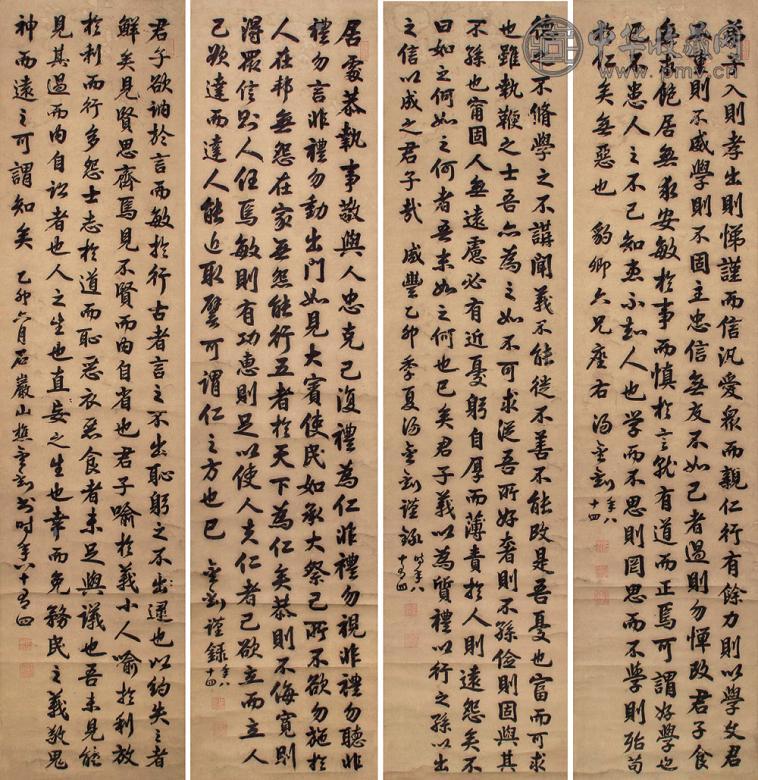 中华收藏网
www.pmv.cn
弟子入則孝出則悌謹而信汎愛衆而親仁行有餘力則以學文君
子不重則不威學則不固主忠信無友不如己者過則勿憚改君子食
無求飽居無求安敏於事而慎於言就有道而正焉可謂好學也
已不患人之不己知患不知人也學而不思則罔思而不學則殆苟
於仁矣無惡也 豹卿六兄座右 湯金釗 年八十四
德之不脩學之不講聞義不能徙不善不能改是吾憂也富而可求
也雖執鞭之士吾亦為之如不可求從吾所好奢則不孫儉則固與其
不孫也甯固人無遠慮必有近憂躬自厚而薄責於人則遠怨矣不
曰如之何如之何者吾末如之何也已矣君子義以為質禮以行之孫以出
之信以成之君子哉 咸豐乙卯季夏湯金釗謹錄 時年八十有四
居處恭執事敬與人忠克己復禮為仁非禮勿視非禮勿聽非
禮勿言非禮勿動出門如見大賓使民如承大祭己所不欲勿施於
人在邦無怨在家無怨能行五者於天下為仁矣恭則不侮寬則
得眾信則人任焉敏則有功惠則足以使人夫仁者己欲立而立人
己欲達而達人能近取譬可謂仁之方也已 金釗謹錄 年八十四
君子欲訥於言而敏於行古者言之不出恥躬之不逮也以約失之者
鮮矣見賢思齊焉見不賢而內自省也君子喻於義小人喻於利放
於利而行多怨士志於道而恥惡衣惡食者未足與議也吾未見能
見其過而內自訟者也人之生也直妄之生也幸而免務民之義敬鬼
神而遠之可謂知矣 乙卯六月石巖山樵金釗書時年八十有四